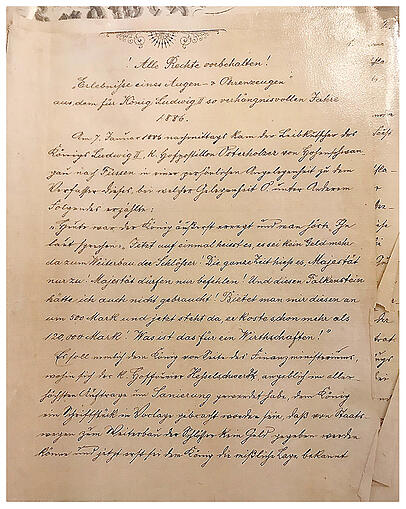 ! Alle Rechte vorbehalten !
"Erlebnisse eines Augen- & Ohrenzeugen"
aus dem für König Ludwig II so verhängnisvollen Jahre
1886.
Am 7. Januar 1886 nachmittags kam der Leibkutscher des
Königs Ludwig II, K. Hofpostillon Osterholzer von Hohenschwan
gau nach Füssen in einer persönlichen Angelegenheit zu dem
Verfasser dieses, bei welcher Gelegenheit O. unter Anderem
Folgendes erzählte:
"Heute war der König äußerst erregt und man hörte Ihn
laut sprechen: Jetzt auf einmal heisst es, es sei kein Geld mehr
da zum Weiterbau der Schlösser! Die ganze Zeit hiess es, Majestät
nur zu! Majestät dürfen nur befehlen! Und diesen Falkenstein
hätte ich auch nicht gebraucht! Bietet man mir diesen an
um 500 Mark und jetzt steht da er koste schon mehr als
120,000 Mark! Was ist das für ein Wirthschaften!"
Es soll nemlich dem König von Seite des Finanzministeriums,
wohin sich der K. Hoffourier Hesselschwerdt angeblich im aller-
höchsten Auftrage um Sanierung gewendet habe, dem König
ein Schriftstück in Vorlage gebracht worden sein, daß von Staats-
wegen zum Weiterbau der Schlösser kein Geld gegeben werden
könne und jetzt erst sei dem König die mißliche Lage bekannt